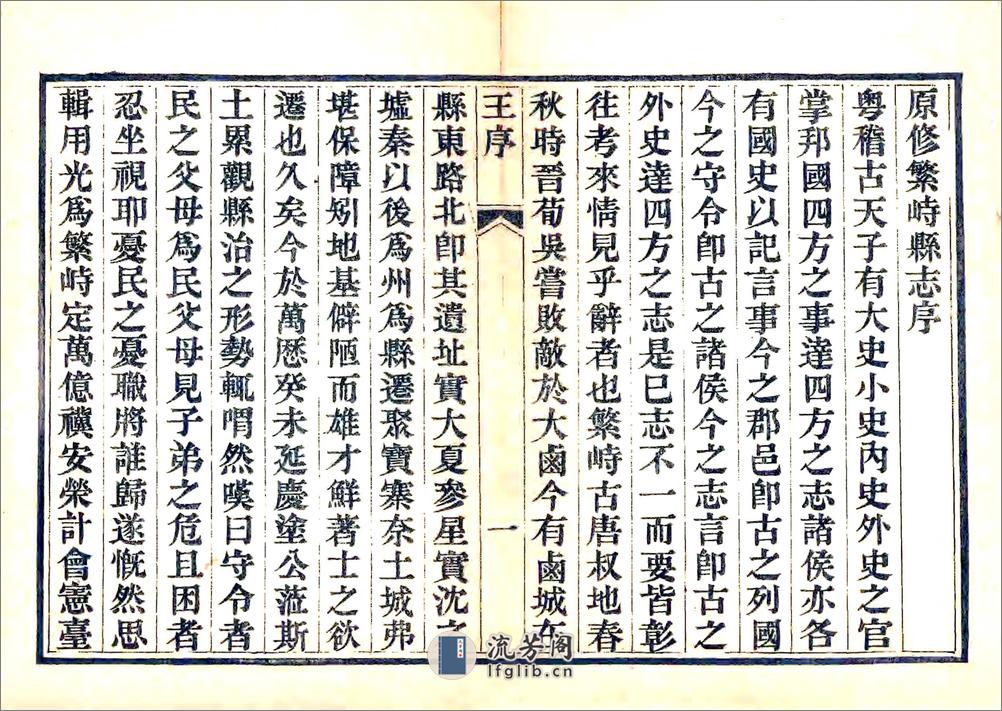 原修繁峙縣志序
粤稽古天子有大史小史內史外史之官
掌邦國四方之事達四方之志諸侯亦各
有國史以記言事今之郡邑卽古之列國
今之守令卽古之諸侯今之志言卽古之
外史達四方之志是已志不一而要皆彰
往考來情見乎辭者也繁峙古唐叔地春
秋時晉荀吳嘗敗敵於大鹵今有鹵城在
王序
一
縣東路北卽其遺址實大夏參星實沈之
墟秦以後爲州爲縣遷聚寶寨奈土城弗
堪保障矧地基僻陋而雄才鮮著士之欲
遷也久矣今於萬歷癸未延慶塗公蒞斯
土畧觀縣治之形勢輒喟然嘆曰守令者
民之父母爲民父母見子弟之危且困者
忍坐視耶憂民之憂職將誰歸遂慨然思
輯用光爲繁峙定萬億禩安榮計會憲臺
流芳阁
lfglib.cn